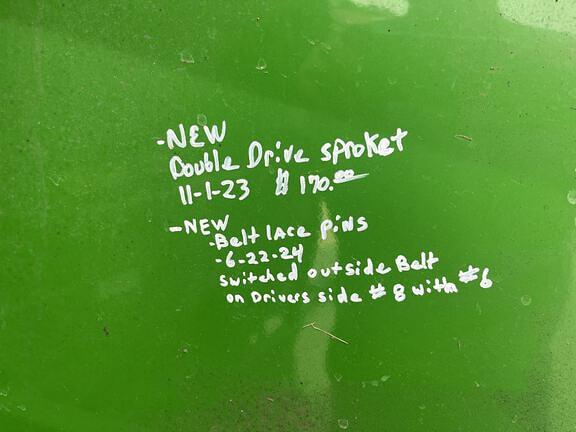 -NEW
Double Drive sproket
11-1-23 $ 170.00
-NEW
-Belt lace pins
-6-22-24
switched outside Belt
on Drivers side #8 with #6